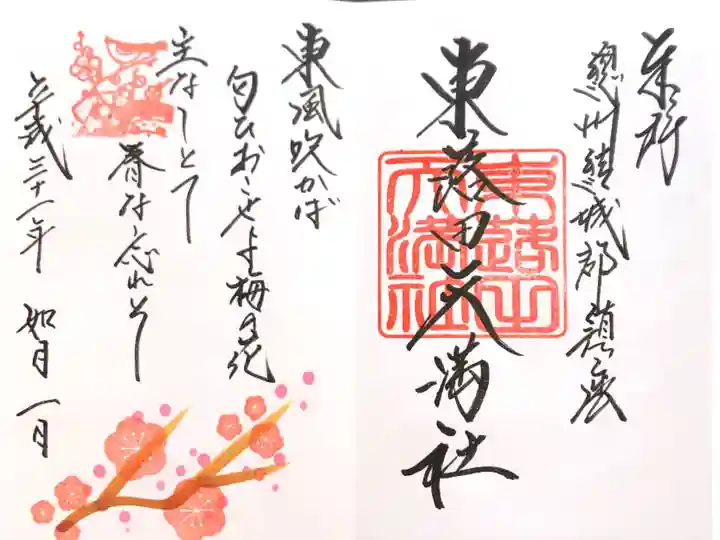 奉拝
總州結城郡鎮座
東蕗田天満社
東蕗田
天満社
東風吹かば
匂ひおこせよ梅の花
主なしとて
春な忘れそ
平成三十一年 如月一日